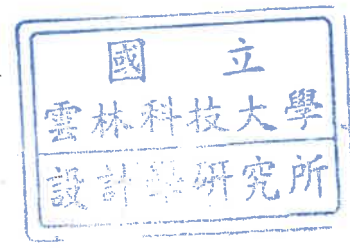 國 立
雲林科技大學
設計學研究所